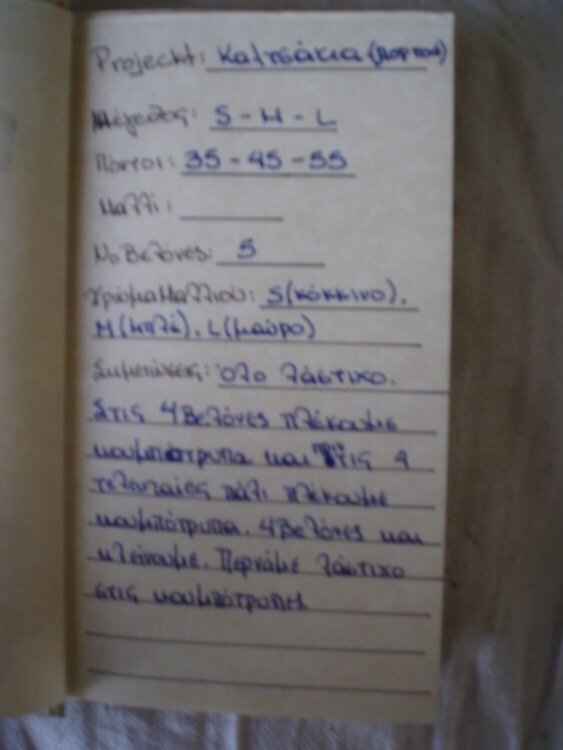 Projeckt: Καλτσάκια (πορτοκ)
Μέγεθος: S - M - L
Πόντοι: 35 - 45 - 55
Μαλλί:
Νο Βελόνες: 5
Χρώμα Μαλλιού: S (κόκκινο),
M (μπλέ), L (μαύρο)
Σημειώσεις: Όλο λάστιχο.
Στις 4 Βελόνες πλέκουμε
κουμπότρυπα και τις 4
τελευταίες πάλι πλέκουμε
κουμπότρυπα. 4 Βελόνες και
κλείνουμε. Περνάμε λάστιχο
στις κουμπότρυπες